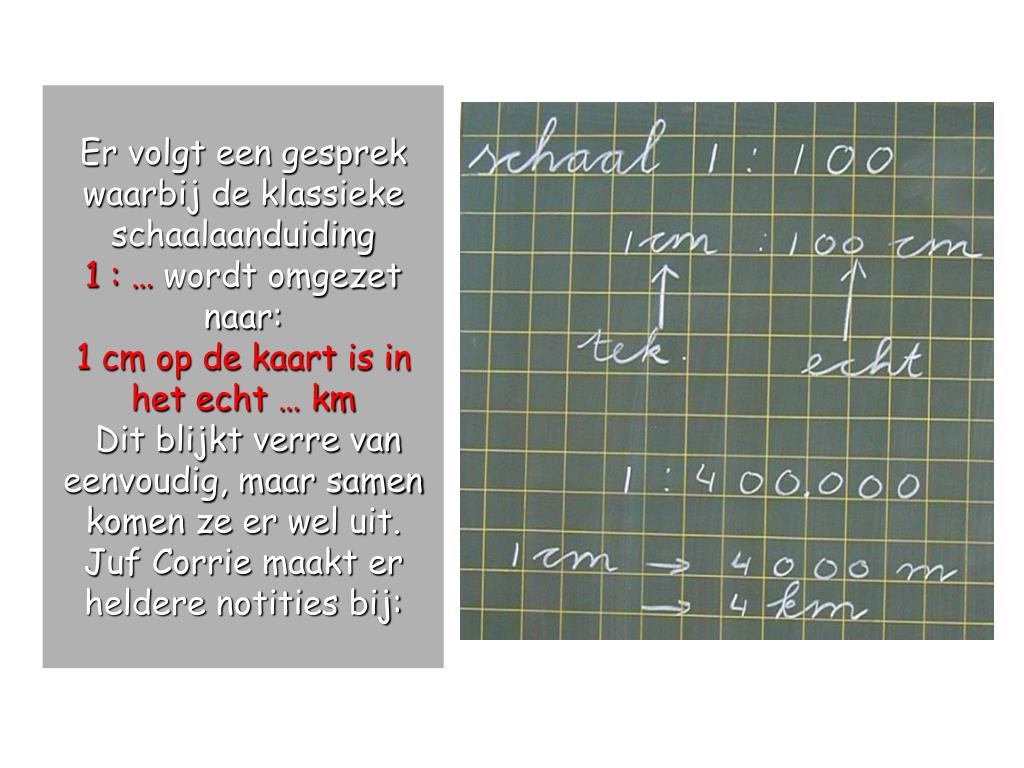 Er volgt een gesprek
waarbij de klassieke
schaalaanduiding
1 : … wordt omgezet
naar:
1 cm op de kaart is in
het echt … km
Dit blijkt verre van
eenvoudig, maar samen
komen ze er wel uit.
Juf Corrie maakt er
heldere notities bij:
schaal 1 : 100
1 cm : 100 cm
tek. echt
1 : 400.000
1 cm → 4000 m
→ 4 km